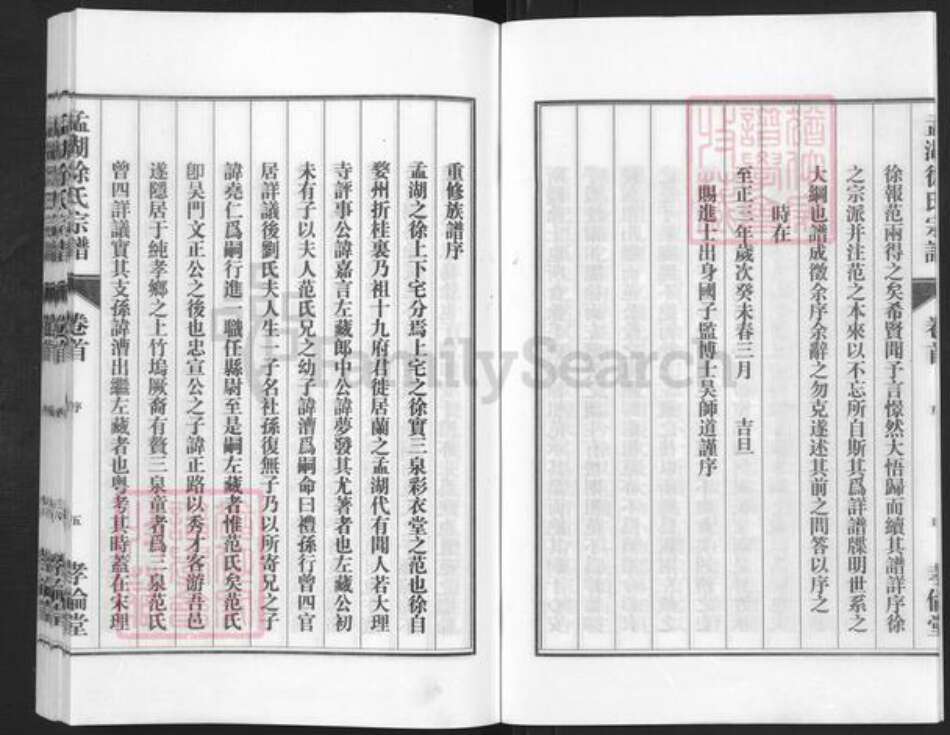 徐報范兩得之矣希賢聞予言憬然大悟歸而續其譜詳序徐
之宗派并注范之本來以不忘所自斯其爲詳譜牒明世系之
大綱也譜成徵余序余辭之勿克遂述其前之問答以序之
時在
至正三年歲次癸未春三月 吉旦
賜進士出身國子監博士吴師道謹序
孟湖徐氏宗譜 卷首
重修族譜序
孟湖之徐上下宅分焉上宅之徐實三泉彩衣堂之范也徐自
婺州折桂裏乃祖十九府君徙居蘭之孟湖代有聞人若大理
寺評事公諱嘉言左藏郎中公諱夢發其尤著者也左藏公初
未有子以夫人范氏兄之幼子諱漕爲嗣命曰禮孫行曾四官
居詳議後劉氏夫人生一子名社孫復無子乃以所寄兄之子
諱堯仁爲嗣行進一職任縣尉至是嗣左藏者惟范氏矣范氏
卽吴門文正公之後也忠宣公之子諱正路以秀才客游吾邑
遂隱居于純孝鄉之上竹塢厥裔有贅三泉童者爲三泉范氏
曾四詳議實其支孫諱漕出繼左藏者也粤考其時蓋在宋理
孟湖徐氏宗譜 卷首 序 五 孝倫堂
FamilySearch